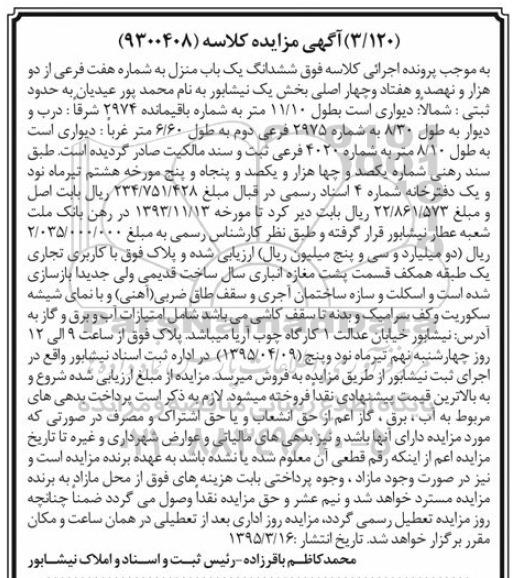 (۳/۱۲۰) آگهی مزایده کلاسه (۹۳۰۰۴۰۸)
به موجب پرونده اجرائی کلاسه فوق ششدانگ یک باب منزل به شماره هفت فرعی از دو
هزار و نهصد و هفتاد وچهار اصلی بخش یک نیشابور به نام محمد پور عیدیان به حدود
ثبتی : شمالا: دیواری است بطول ۱۱/۱۰ متر به شماره باقیمانده ۲۹۷۴ شرقاً : درب و
دیوار به طول ۸/۳۰ به شماره ۲۹۷۵ فرعی دوم به طول ۶/۶۰ متر غرباً : دیواری است
به طول ۸/۱۰ متر به شماره ۴۰۲۰ فرعی ثبت و سند مالکیت صادر گردیده است. طبق
سند رهنی شماره یکصد و چها هزار و یکصد و پنجاه و پنج مورخه هشتم تیرماه نود
و یک دفترخانه شماره ۴ اسناد رسمی در قبال مبلغ ۲۳۴/۷۵۱/۴۲۸ ریال بابت اصل
و مبلغ ۲۲/۸۶۱/۵۷۳ ریال بابت دیر کرد تا مورخه ۱۳۹۳/۱۱/۱۳ در رهن بانک ملت
شعبه عطار نیشابور قرار گرفته و طبق نظر کارشناس رسمی به مبلغ ۲/۰۳۵/۰۰۰/۰۰۰
ریال (دو میلیارد و سی و پنج میلیون ریال) ارزیابی شده و پلاک فوق با کاربری تجاری
یک طبقه همکف قسمت پشت مغازه انباری سال ساخت قدیمی ولی جدیدا بازسازی
شده است و اسکلت و سازه ساختمان آجری و سقف طاق ضربی(آهنی) و با نمای شیشه
سکوریت وکف سرامیک و بدنه تا سقف کاشی می باشد شامل امتیازات آب و برق و گاز به
آدرس: نیشابور خیابان عدالت ۱ کارگاه چوب آریا میباشد. پلاک فوق از ساعت ۹ الی ۱۲
روز چهارشنبه نهم تیرماه نود وپنج (۱۳۹۵/۰۴/۰۹) در اداره ثبت اسناد نیشابور واقع در
اجرای ثبت نیشابور از طریق مزایده به فروش میرسد. مزایده از مبلغ ارزیابی شده شروع و
به بالاترین قیمت پیشنهادی نقدا فروخته میشود. لازم به ذکر است پرداخت بدهی های
مربوط به آب ، برق ، گاز اعم از حق انشعاب و یا حق اشتراک و مصرف در صورتی که
مورد مزایده دارای آنها باشد و نیز بدهی های مالیاتی و عوارض شهرداری و غیره تا تاریخ
مزایده اعم از اینکه رقم قطعی آن معلوم شده یا نشده باشد به عهده برنده مزایده است و
نیز در صورت وجود مازاد ، وجوه پرداختی بابت هزینه های فوق از محل مازاد به برنده
مزایده مسترد خواهد شد و نیم عشر و حق مزایده نقدا وصول می گردد ضمناً چنانچه
روز مزایده تعطیل رسمی گردد، مزایده روز اداری بعد از تعطیلی در همان ساعت و مکان
مقرر برگزار خواهد شد. تاریخ انتشار :۱۳۹۵/۳/۱۶
محمدکاظم باقرزاده-رئیس ثبت و اسناد و املاک نیشابور